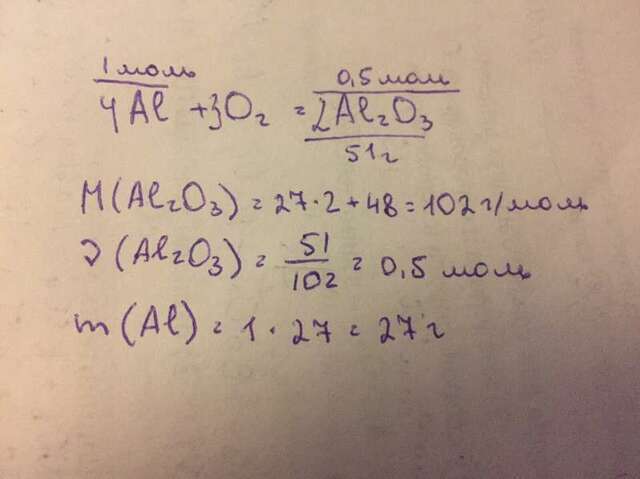 1 моль 0,5 мол
4Al + 3O₂ = 2Al₂O₃
51г
M(Al₂O₃) = 27·2+48 = 102 г/моль
ν(Al₂O₃) = 51/102 = 0,5 моль
m(Al) = 1 · 27 = 27 г